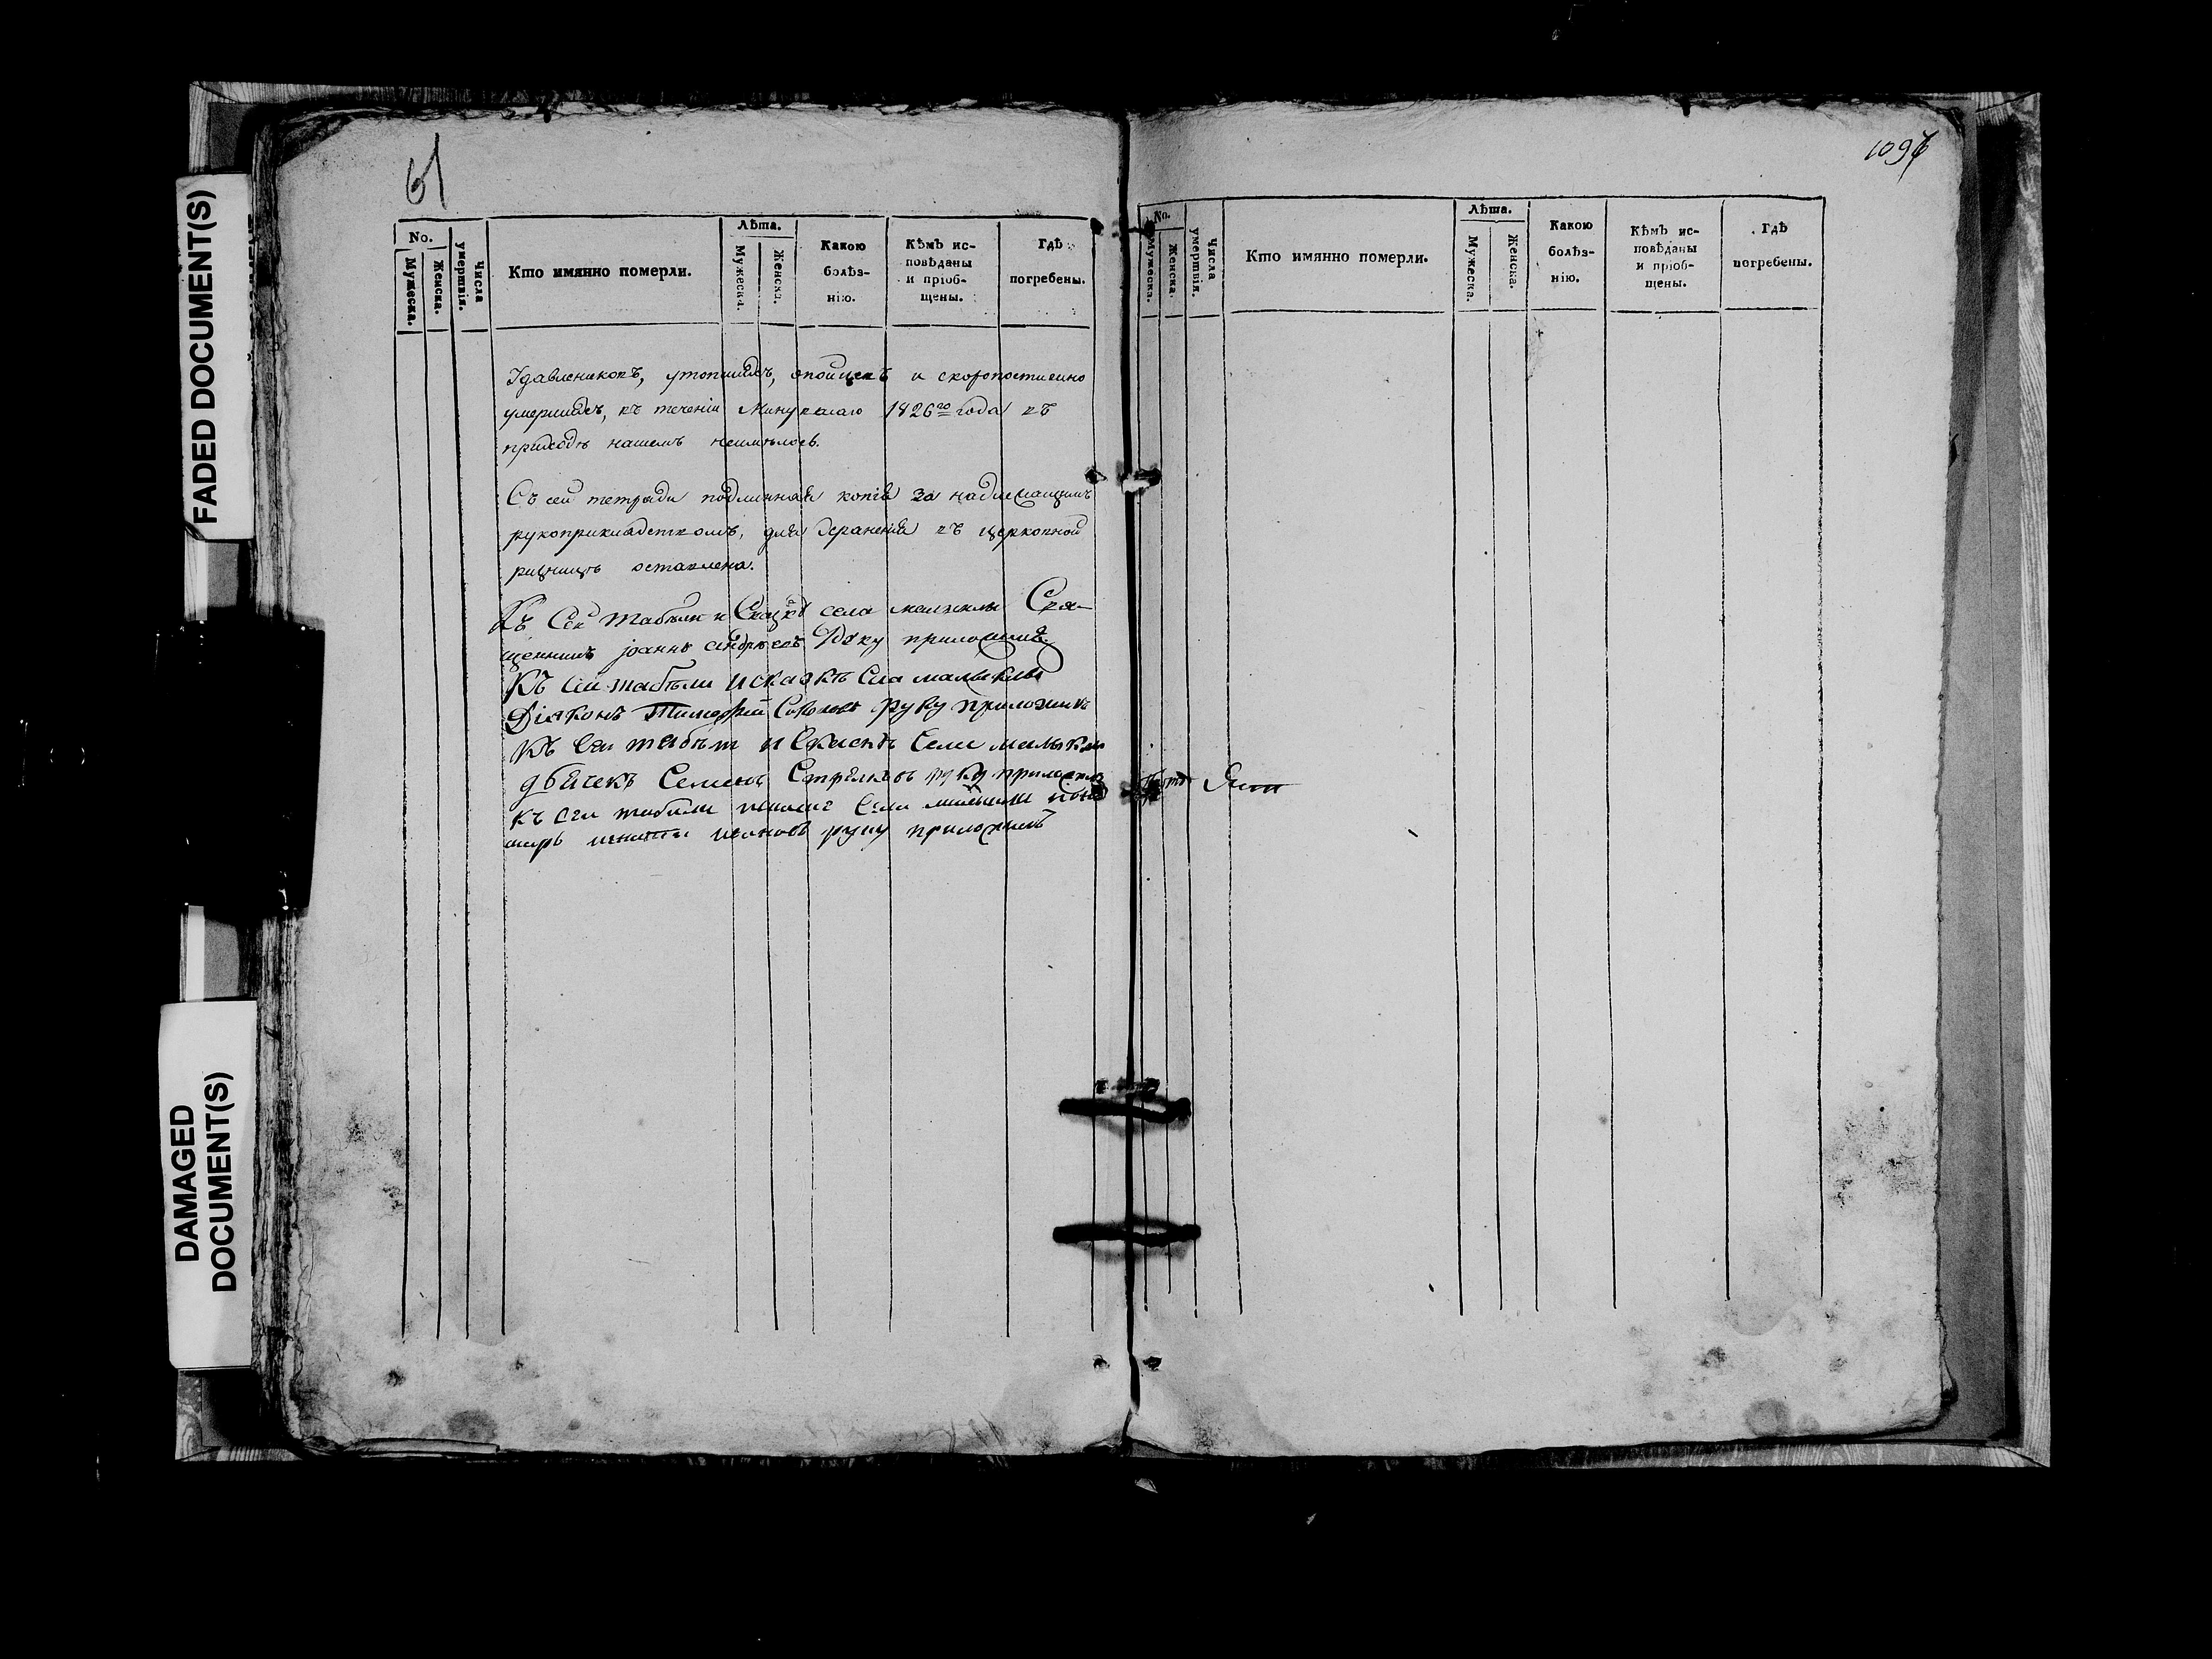 FADED DOCUMENT(S)
DAMAGED
DOCUMENT(S)
61
No.
Мужеска.
Женска.
Числа
умертвія.
Кто имянно померли.
Лѣта.
Мужеска.
Женска.
Какою
болѣз-
нію.
Кѣмъ ис-
повѣданы
и пріоб-
щены.
Гдѣ
погребены.
Удавлениковъ, утопшихъ, опойцевъ и скоропостижно
умершихъ, въ теченіи минувшаго 1826го года въ
приходѣ нашемъ неимѣлось.
Съ сей тетради подлинная копія за надлежащимъ
рукоприкладствомъ, для храненія въ церковной
ризницѣ оставлена.
Къ Сей табѣли и села малыклы Свя-
щенникъ Андреевъ Руку приложилъ
Къ Сей табѣли и сказкѣ Села малыклы
Діяконъ Тимофей руку приложилъ
Къ Сей табѣли и Скаскѣ Села малыклы
дьячекъ Семенъ Стрелковъ руку приложилъ
Къ Сей табѣли Села поно
марь ивановъ руку приложилъ
109
No.
Мужеска.
Женска.
Числа
умертвія.
Кто имянно померли.
Лѣта.
Мужеска.
Женска.
Какою
болѣз-
нію.
Кѣмъ ис-
повѣданы
и пріоб-
щены.
Гдѣ
погребены.